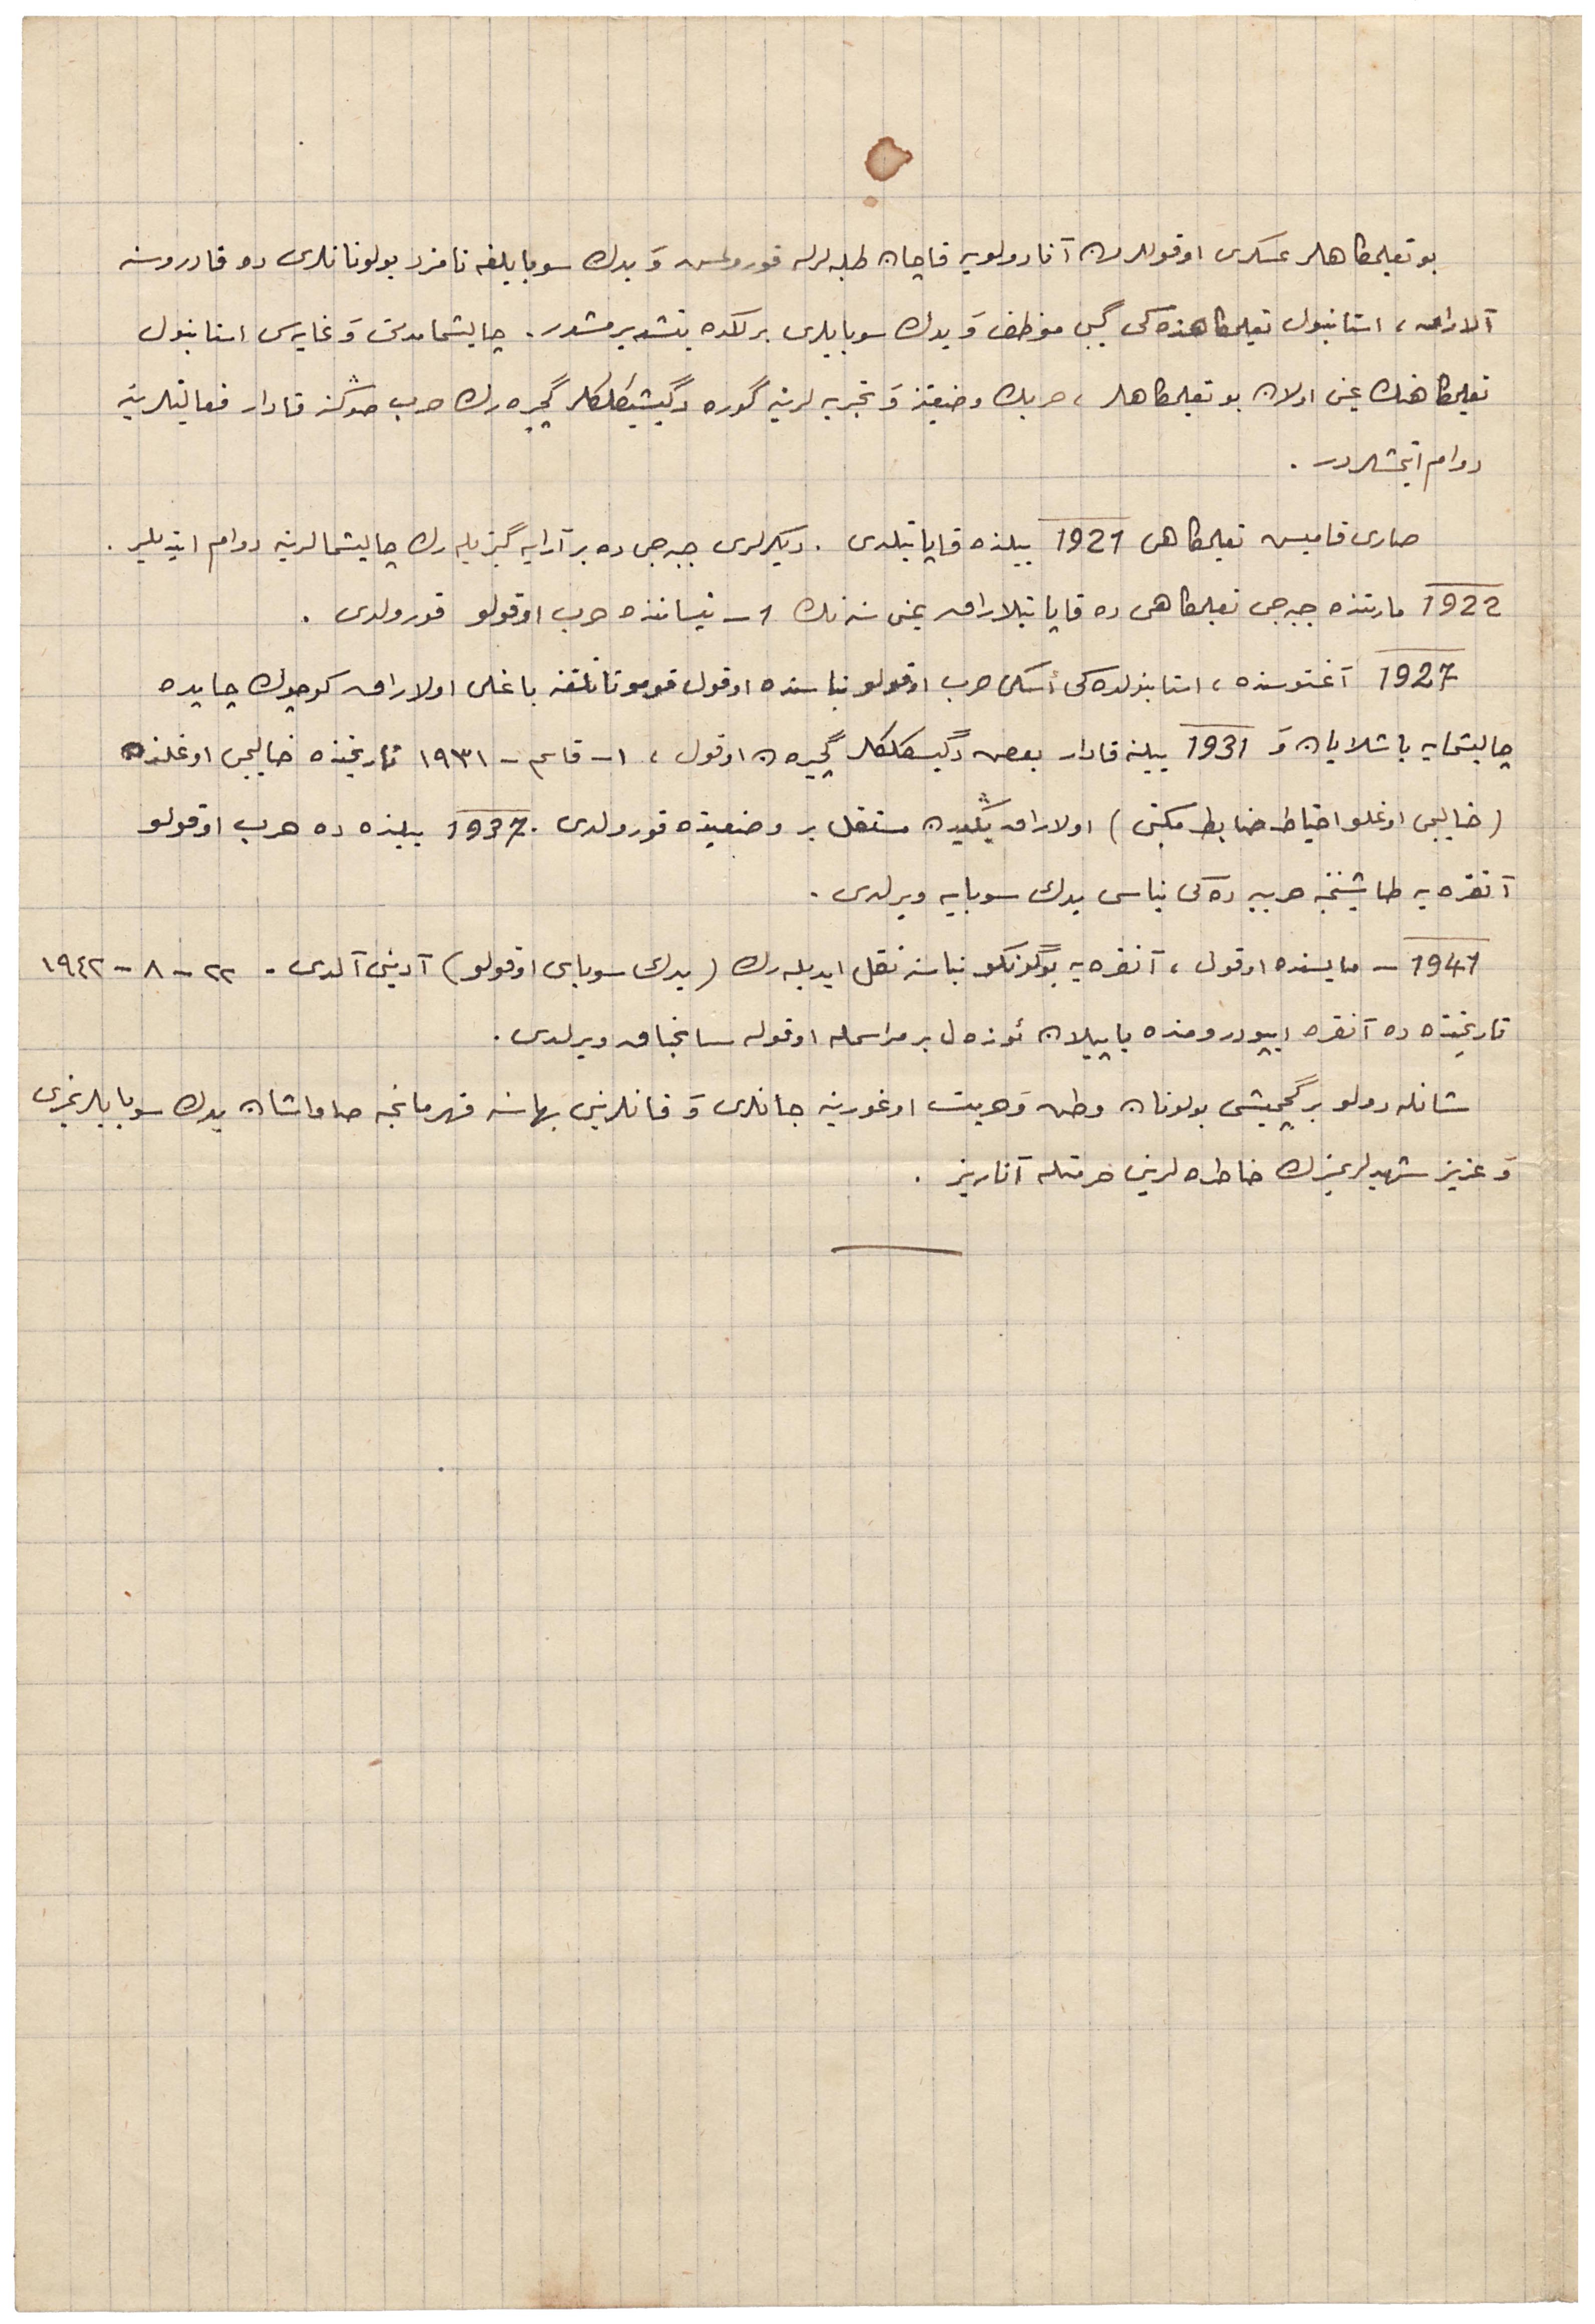 بو تعلیمگاهلر عسکری اوقوللردن آنادولویه قاچان طلبه‌لرله قورولمش وَ یدك سوبایلغه نامزد بولونانلری ده قادروسنه
آلاراق ، استانبول تعلیمگاهنده‌کی گیبی موظف وَ یدك سوبایلری برلکده یتشدیرمشدر . چالیشما مدتی وَ غایه‌سی استانبول
تعلیمگاهنك عینی اولان بو تعلیمگاهلر ، حربك وضعیتنه وَ تجربه‌لرینه گوره دگیشیکلکلر گچیره‌رك حرب صوڭنه قادار فعالیتلرینه
دوام ایتمشلردر .
صاری قامیس تعلیمگاهی 1921 ییلنده قاپاتیلدی . دیگرلری جبه‌جی ده بر آرایه گتیریله‌رك چالیشمالرینه دوام ایتدیلر .
1922 مارتنده جبه‌جی تعلیمگاهی ده قاپاتیلاراق عینی سنه‌نك 1 ـ نیساننده حرب اوقولو قورولدی .
1927 آغستوسنده ، استانبولده‌کی أسکی حرب اوقولو بناسنده اوقول قوموتانلغنه باغلی اولاراق کوچوك چاپده
چالیشمایه باشلایان وَ 1931 ییلنه قادار بعض دگیشکلکلر گچیرن اوقول ، ١ـ قاسم ـ ١٩٣١ تاریخنده خالیجی اوغلنده
(خالیجی اوغلو احتیاط ضابط مکتبی) اولاراق یڭیدن مستقل بر وضعیتده قورولدی . 1937 ییلنده ده حرب اوقولو
آنقره‌یه طاشینجه حربیه ده‌کی بناسی یدك سوبایه ویرلدی .
1941 ـ مایسنده اوقول ، آنقره‌یه بوگونکو بناسنه نقل ایدیله‌رك (یدك سوبای اوقولو) آدینی آلدی . ٢٢ ـ ٨ ـ ١٩٤٢
تاریخنده ده آنقره ایپودرومنده یاپیلان ئوزه‌ل بر مراسمله اوقوله سانجاق ویرلدی .
شانله دولو بر گچمیشی بولونان وطن وَ حریت اوغورینه جانلری وَ قانلرینی بهاسنه قهرمانجه صاواشان یدك سوبایلریمزی
وَ عزیز شهیدلریمزك خاطره‌لرینی حرمتله آناریز .